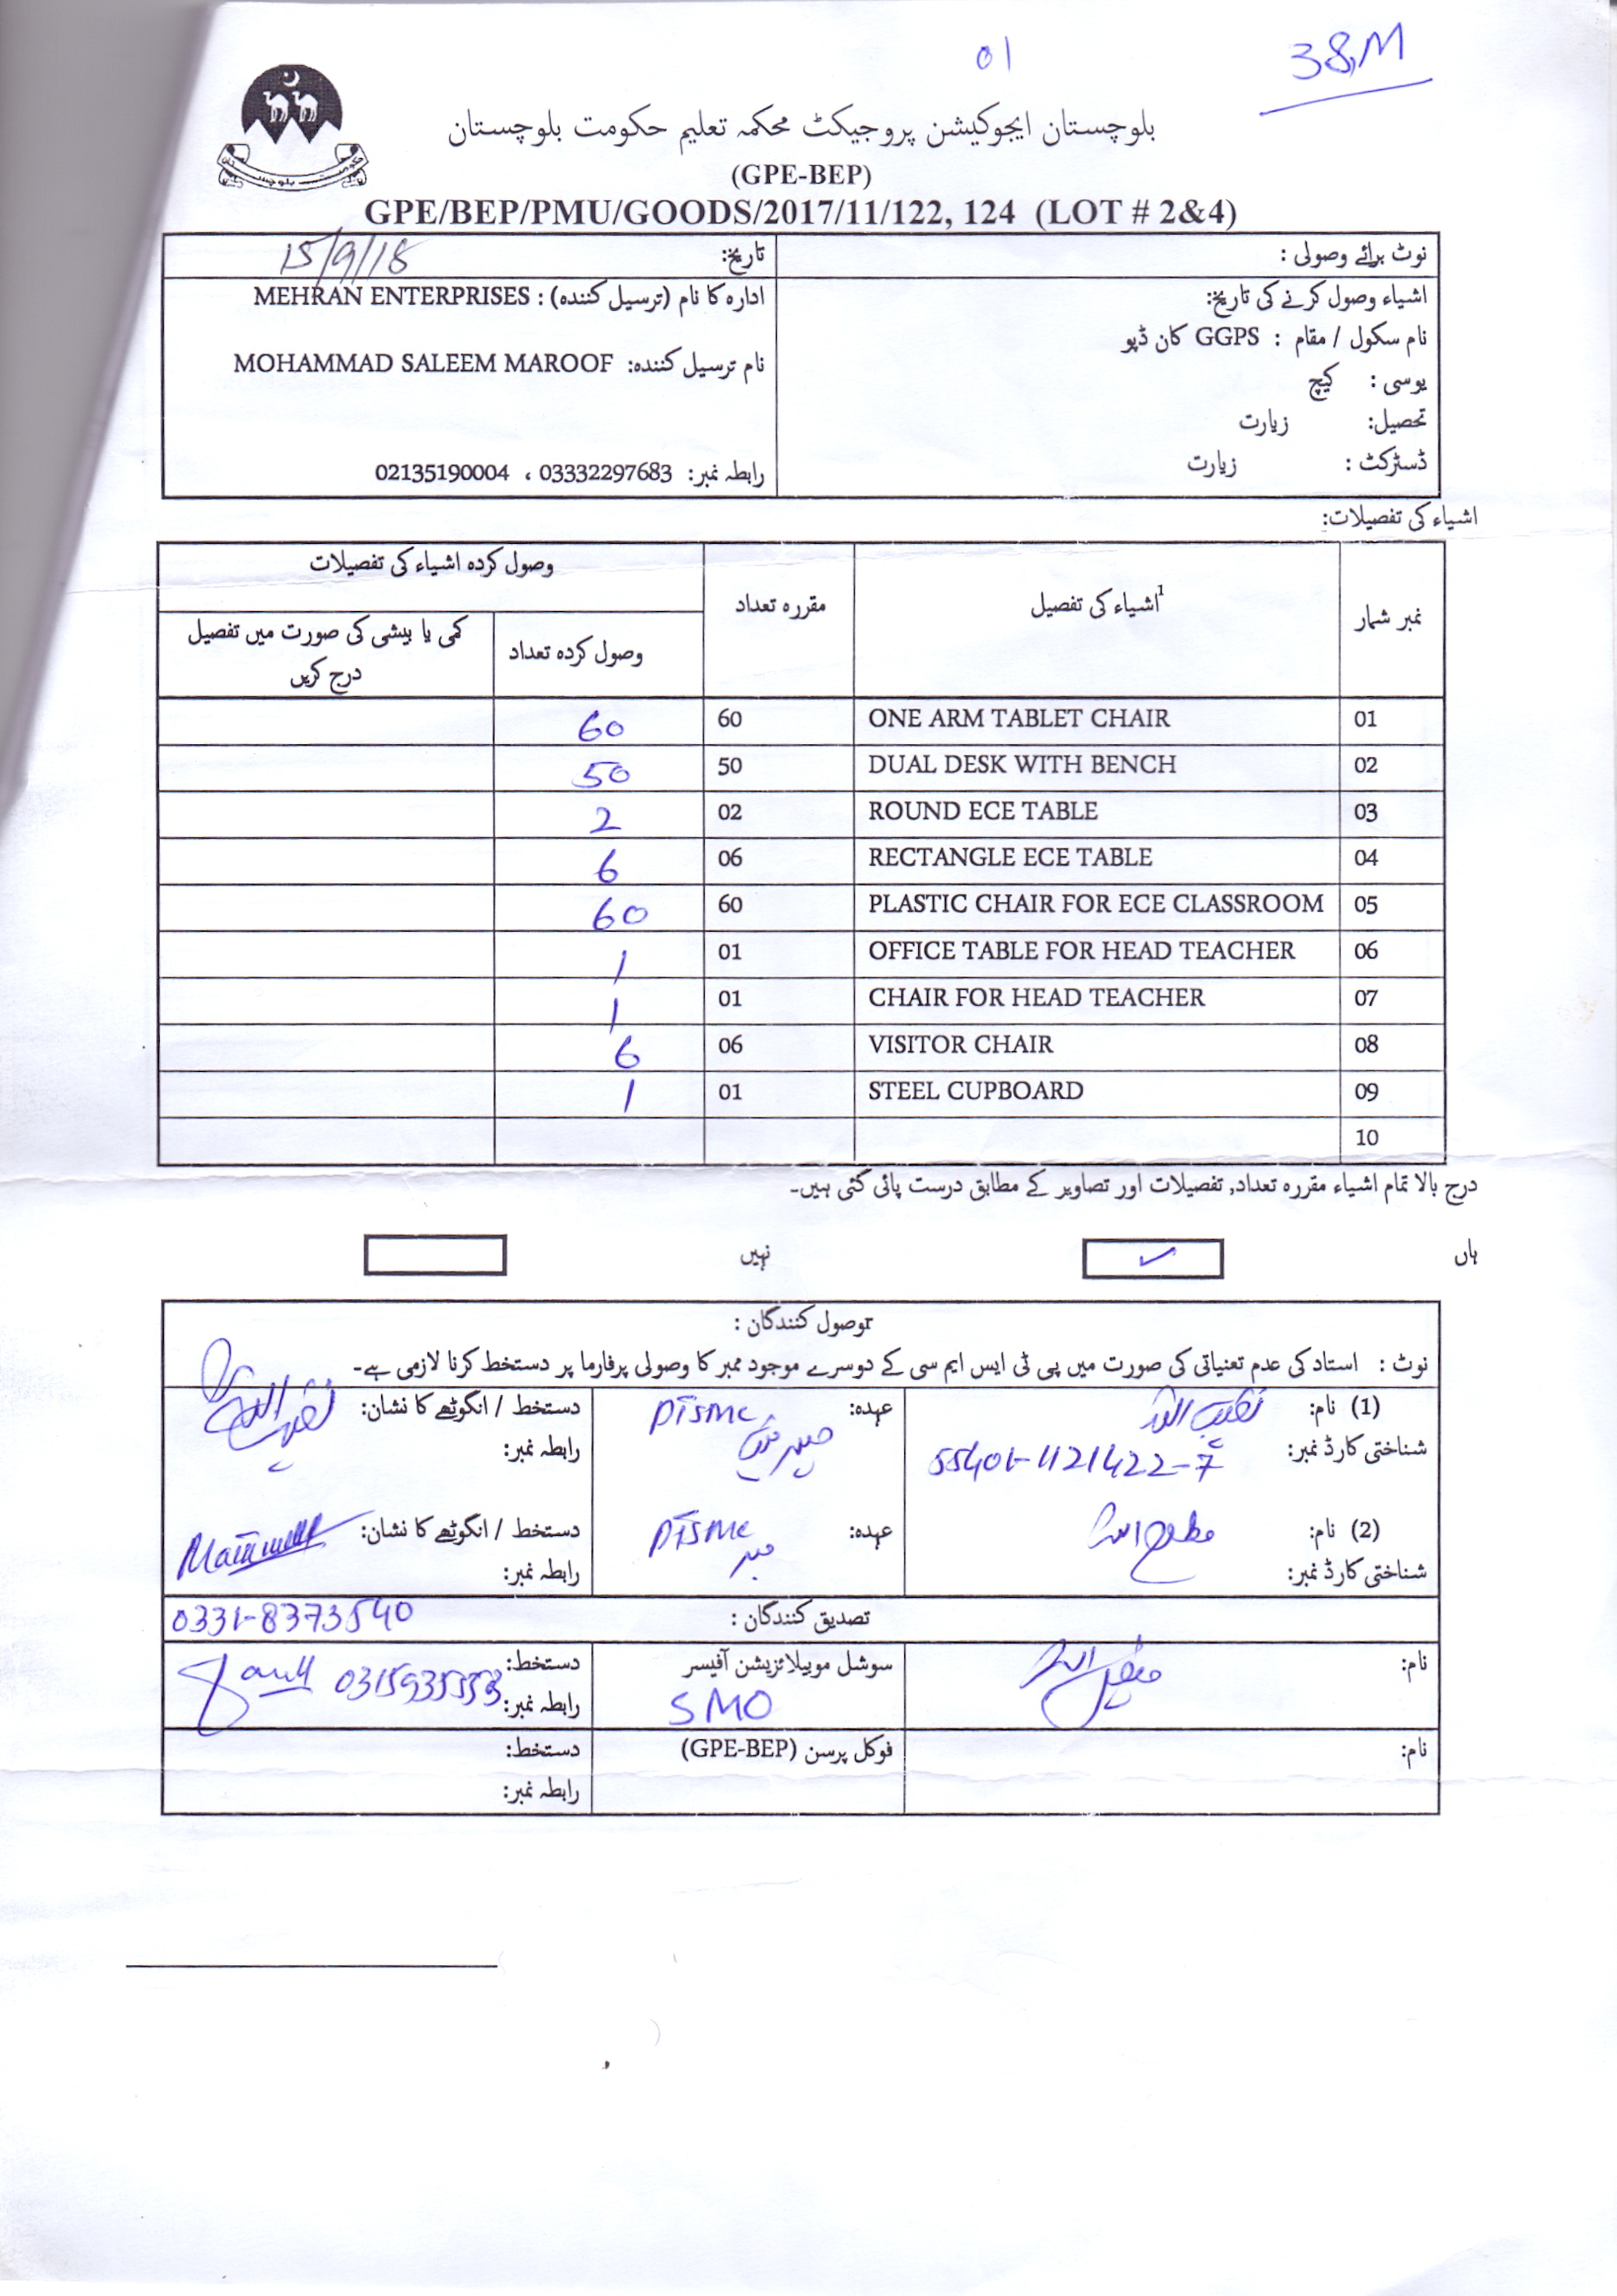 01
38,M
بلوچستان ایجوکیشن پروجیکٹ محکمہ تعلیم حکومت بلوچستان
(GPE-BEP)
GPE/BEP/PMU/GOODS/2017/11/122, 124 (LOT # 2&4)
نوٹ برائے وصولی :
تاریخ: 15/9/18
اشیاء وصول کرنے کی تاریخ:
نام سکول / مقام : GGPS کان ڈپو
یوسی : کیچ
تحصیل: زیارت
ڈسٹرکٹ : زیارت
ادارہ کا نام (ترسیل کنندہ) : MEHRAN ENTERPRISES
نام ترسیل کنندہ: MOHAMMAD SALEEM MAROOF
رابطہ نمبر: 03332297683 ، 02135190004
اشیاء کی تفصیلات:
نمبر شمار اشیاء کی تفصیل1 مقررہ تعداد وصول کردہ اشیاء کی تفصیلات
وصول کردہ تعداد کمی یا بیشی کی صورت میں تفصیل
درج کریں
01 ONE ARM TABLET CHAIR 60 60
02 DUAL DESK WITH BENCH 50 50
03 ROUND ECE TABLE 02 2
04 RECTANGLE ECE TABLE 06 6
05 PLASTIC CHAIR FOR ECE CLASSROOM 60 60
06 OFFICE TABLE FOR HEAD TEACHER 01 1
07 CHAIR FOR HEAD TEACHER 01 1
08 VISITOR CHAIR 06 6
09 STEEL CUPBOARD 01 1
10
درج بالا تمام اشیاء مقررہ تعداد, تفصیلات اور تصاویر کے مطابق درست پائی گئی ہیں۔
ہاں ✓ نہیں
وصول کنندگان :
نوٹ : استاد کی عدم تعنیاتی کی صورت میں پی ٹی ایس ایم سی کے دوسرے موجود ممبر کا وصولی پرفارما پر دستخط کرنا لازمی ہے۔
(1) نام: نقیب اللہ عہدہ: PTSMC دستخط / انگوٹھے کا نشان: نقیب اللہ
شناختی کارڈ نمبر: 55401-1121422-7 رابطہ نمبر:
(2) نام: مطیع اللہ عہدہ: PTSMC ممبر دستخط / انگوٹھے کا نشان:
شناختی کارڈ نمبر: رابطہ نمبر:
تصدیق کنندگان : 0331-8373540
نام: سوشل موبیلائزیشن آفیسر دستخط:
SMO رابطہ نمبر: 03159355553
نام: فوکل پرسن (GPE-BEP) دستخط:
رابطہ نمبر: